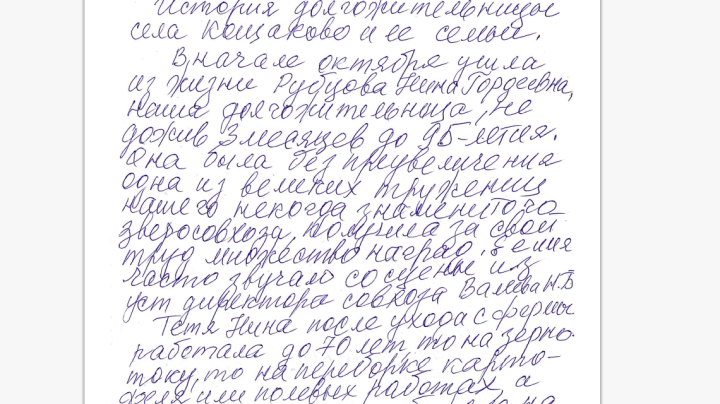 История долгожительницы
села Кощаково и ее семьи.
В начале октября ушла
из жизни Рубцова Нина Гордеевна,
наша долгожительница, не
дожив 3 месяцев до 95-летия.
Она была без преувеличения
одна из великих тружениц
нашего некогда знаменитого
зверосовхоза, получила за свой
труд множество наград. Её имя
часто звучало со сцены из
уст директора совхоза Валеева Н.Б
Тетя Нина после ухода с фермы
работала до 70 лет то на зерно-
току, то на переборке карто-
феля или полевых работах, а